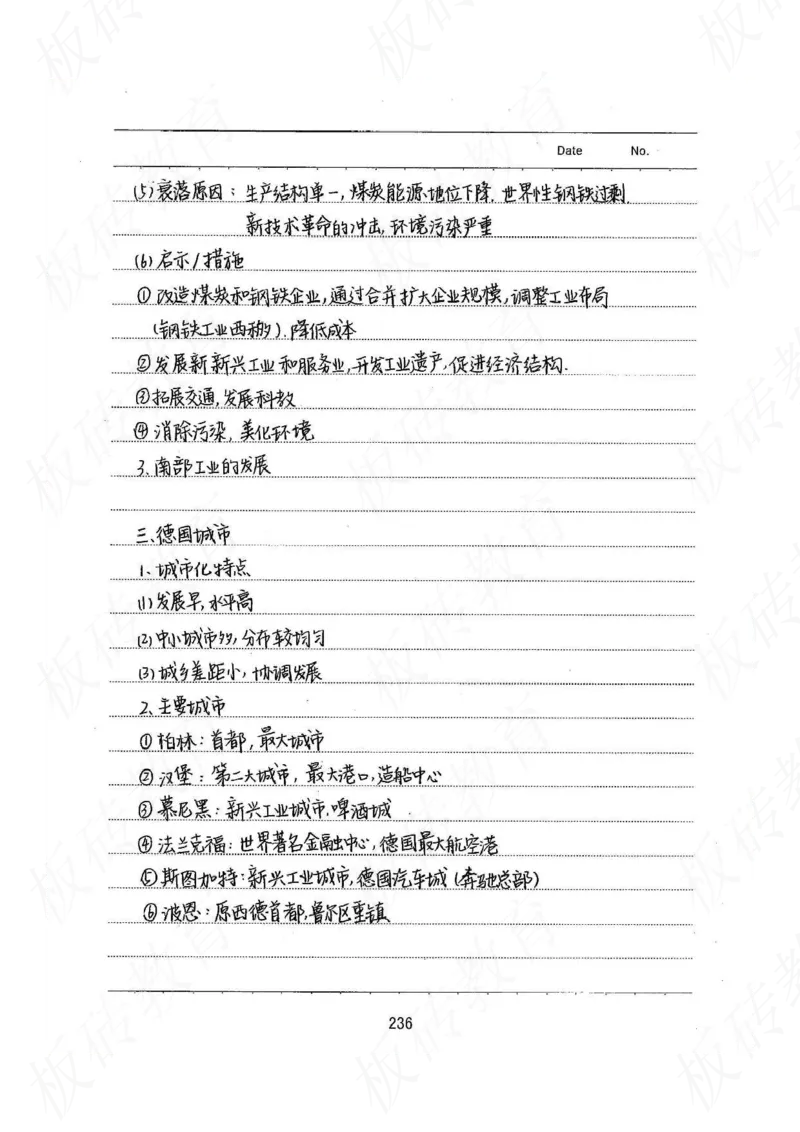 Date No.
(5)衰落原因：生产结构单一,煤炭能源地位下降.世界性钢铁过剩.
新技术革命的冲击,环境污染严重
(6)启示/措施
①改造煤炭和钢铁企业,通过合并扩大企业规模,调整工业布局
(钢铁工业西移).降低成本
②发展新新兴工业和服务业,开发工业遗产,促进经济结构.
③拓展交通,发展科教
④消除污染,美化环境
3、南部工业的发展
三、德国城市
1、城市化特点
(1)发展早,水平高
(2)中小城市多,分布较均匀
(3)城乡差距小,协调发展
2、主要城市
①柏林：首都,最大城市
②汉堡：第二大城市,最大港口,造船中心
③慕尼黑：新兴工业城市.啤酒城
④法兰克福：世界著名金融中心,德国最大航空港
⑤斯图加特:新兴工业城市,德国汽车城(奔驰总部)
⑥波恩：原西德首都,鲁尔区重镇
236
板砖教育